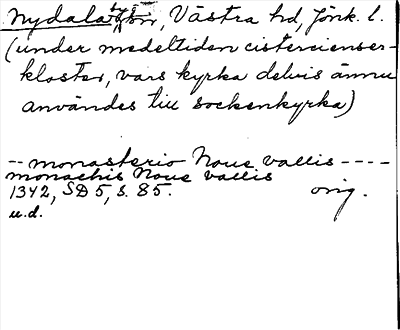 Nydala, Västra hd, Jönk. l.
(under medeltiden cistercienser-
kloster, vars kyrka delvis ännu
användes till sockenkyrka)
-- monasterio Noue vallis ----
monachis Noue vallis
1342, SD 5, s. 85. orig.
u.d.